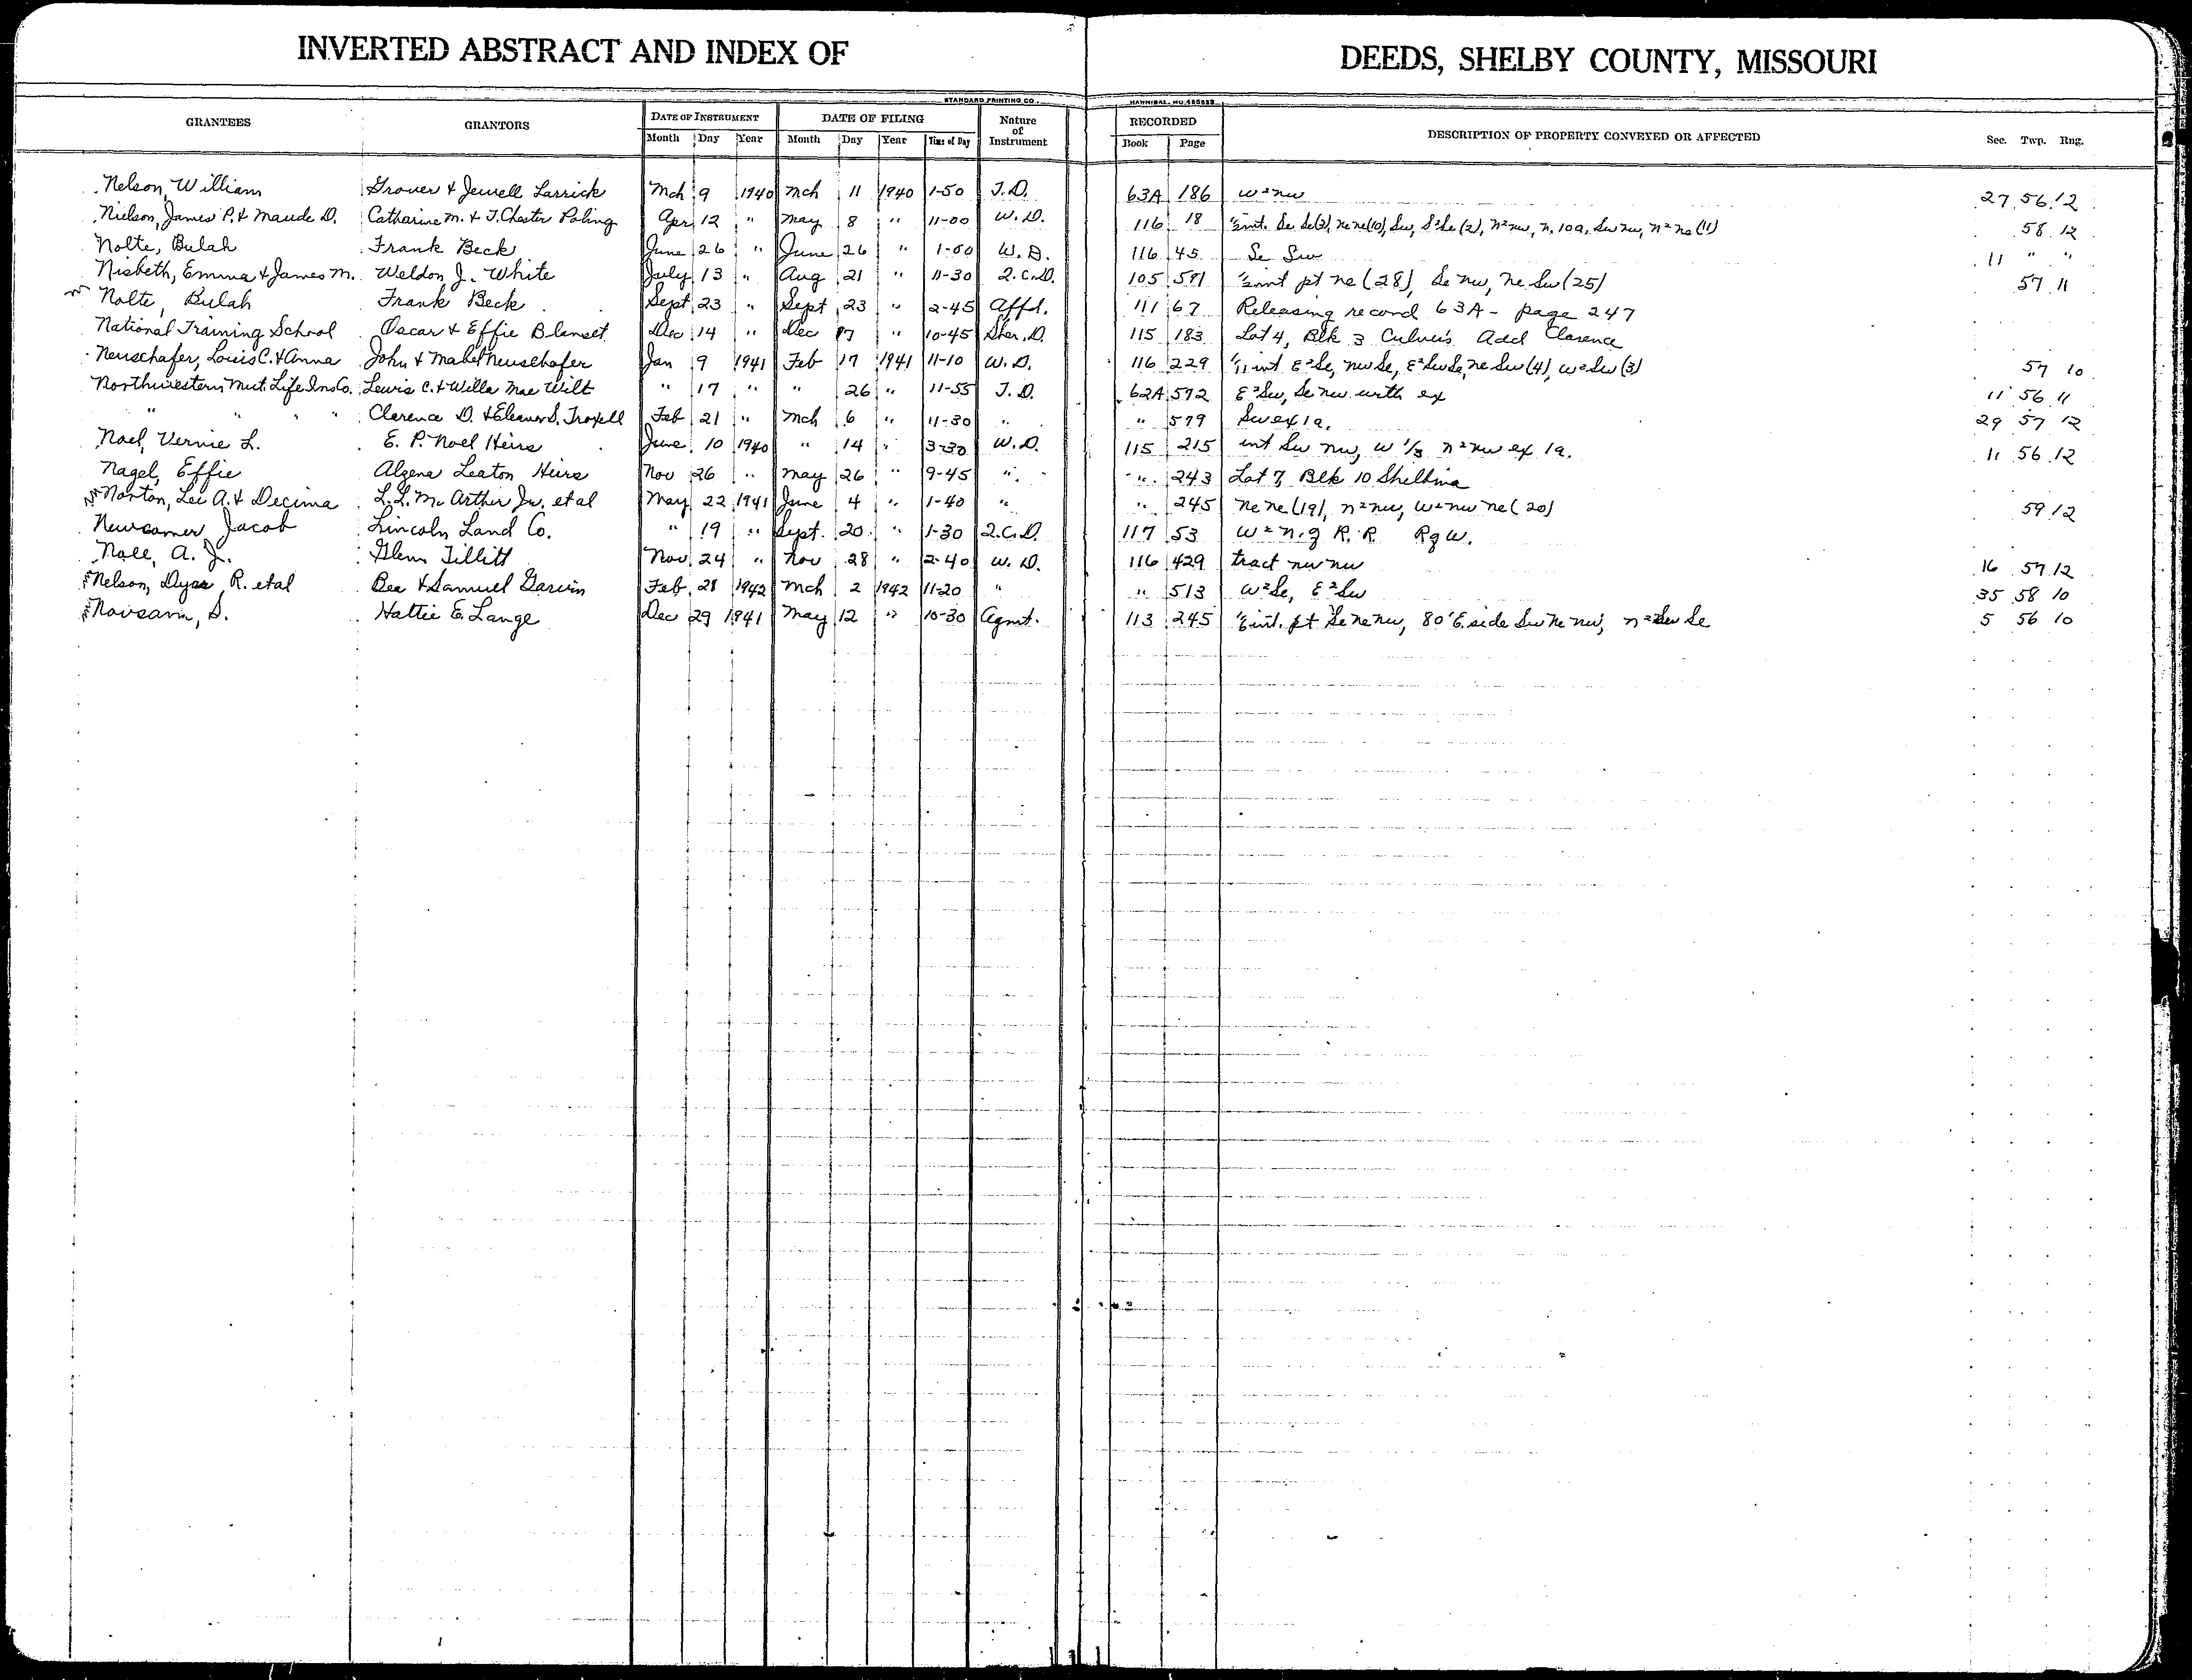 INVERTED ABSTRACT AND INDEX OF DEEDS, SHELBY COUNTY, MISSOURI
STANDARD PRINTING CO., HANNIBAL, MO.
GRANTEES GRANTORS DATE OF INSTRUMENT DATE OF FILING Nature of Instrument RECORDED DESCRIPTION OF PROPERTY CONVEYED OR AFFECTED Sec. Twp. Rng.
Month Day Year Month Day Year Time of Day Book Page
Nelson, William Grover & Jewell Larrick Mch 9 1940 Mch 11 1940 1-50 T.D. 63A 186 W² nw 27 56 12
Nielson, James P. & Maude D. Catharine M. & J. Chester Poling Apr 12 " May 8 " 11-00 W.D. 116 18 int. Se Se(3), ne ne(10), Sw, S²Se(2), n²nw, n, 10a, Sw nw, n²ne(11) 58 12
Nolte, Bulah Frank Beck June 26 " June 26 " 1-00 W.D. 116 45 Se Sw 11 " "
Nisbeth, Emma & James M. Weldon J. White July 13 " Aug 21 " 11-30 2.C.D. 105 591 int pt ne (28), Se nw, ne Sw (25) 57 11
Nolte, Bulah Frank Beck Sept 23 " Sept 23 " 2-45 Affd. 111 67 Releasing record 63A - page 247
National Training School Oscar & Effie Blanset Dec 14 " Dec 17 " 10-45 Sher. D. 115 183 Lot 4, Blk 3 Culver's Add Clarence
Neuschafer, Louis C. & Anna John & Mabel Neuschafer Jan 9 1941 Feb 17 1941 11-10 W.D. 116 229 1/11 int E²Se, nw Se, E²Sw Se, ne Sw (4), W²Sw (3) 57 10
Northwestern Mut. Life Ins Co. Lewis C. & Willa Mae Wilt " 17 " " 26 " 11-55 T.D. 62A 572 E²Sw, Se nw with ex 11 56 11
" " " " Clarence D. & Eleanor S. Troxell Feb 21 " Mch 6 " 11-30 " " 579 Sw ex 1a. 29 57 12
Noel, Vernie L. E. P. Noel Heirs June 10 1940 " 14 " 3-30 W.D. 115 215 int Sw nw, W 1/3 n²nw ex 1a. 11 56 12
Nagel, Effie Algena Leaton Heirs Nov 26 " May 26 " 9-45 " " 243 Lot 7, Blk 10 Shelbina
Norton, Lee A. & Decima L.L. McArthur Jr. et al May 22 1941 June 4 " 1-40 " " 245 ne ne (19), n²nw, W²nw ne (20) 59 12
Newcomer Jacob Lincoln Land Co. " 19 " Sept. 20 " 1-30 2.C.D. 117 53 W² n. of R.R. R of W.
Noll, A. J. Glenn Tillitt Nov 24 " Nov 28 " 2-40 W.D. 116 429 tract nw nw 16 57 12
Nelson, R. et al Bee & Samuel Garvin Feb 28 1942 Mch 2 1942 11-20 " " 513 W²Se, E²Sw 35 58 10
S. Hattie E. Lange Dec 29 1941 May 12 " 10-30 Agmt. 113 245 int. pt Se ne nw, 80' E. side Sw ne nw, n²Sw Se 5 56 10